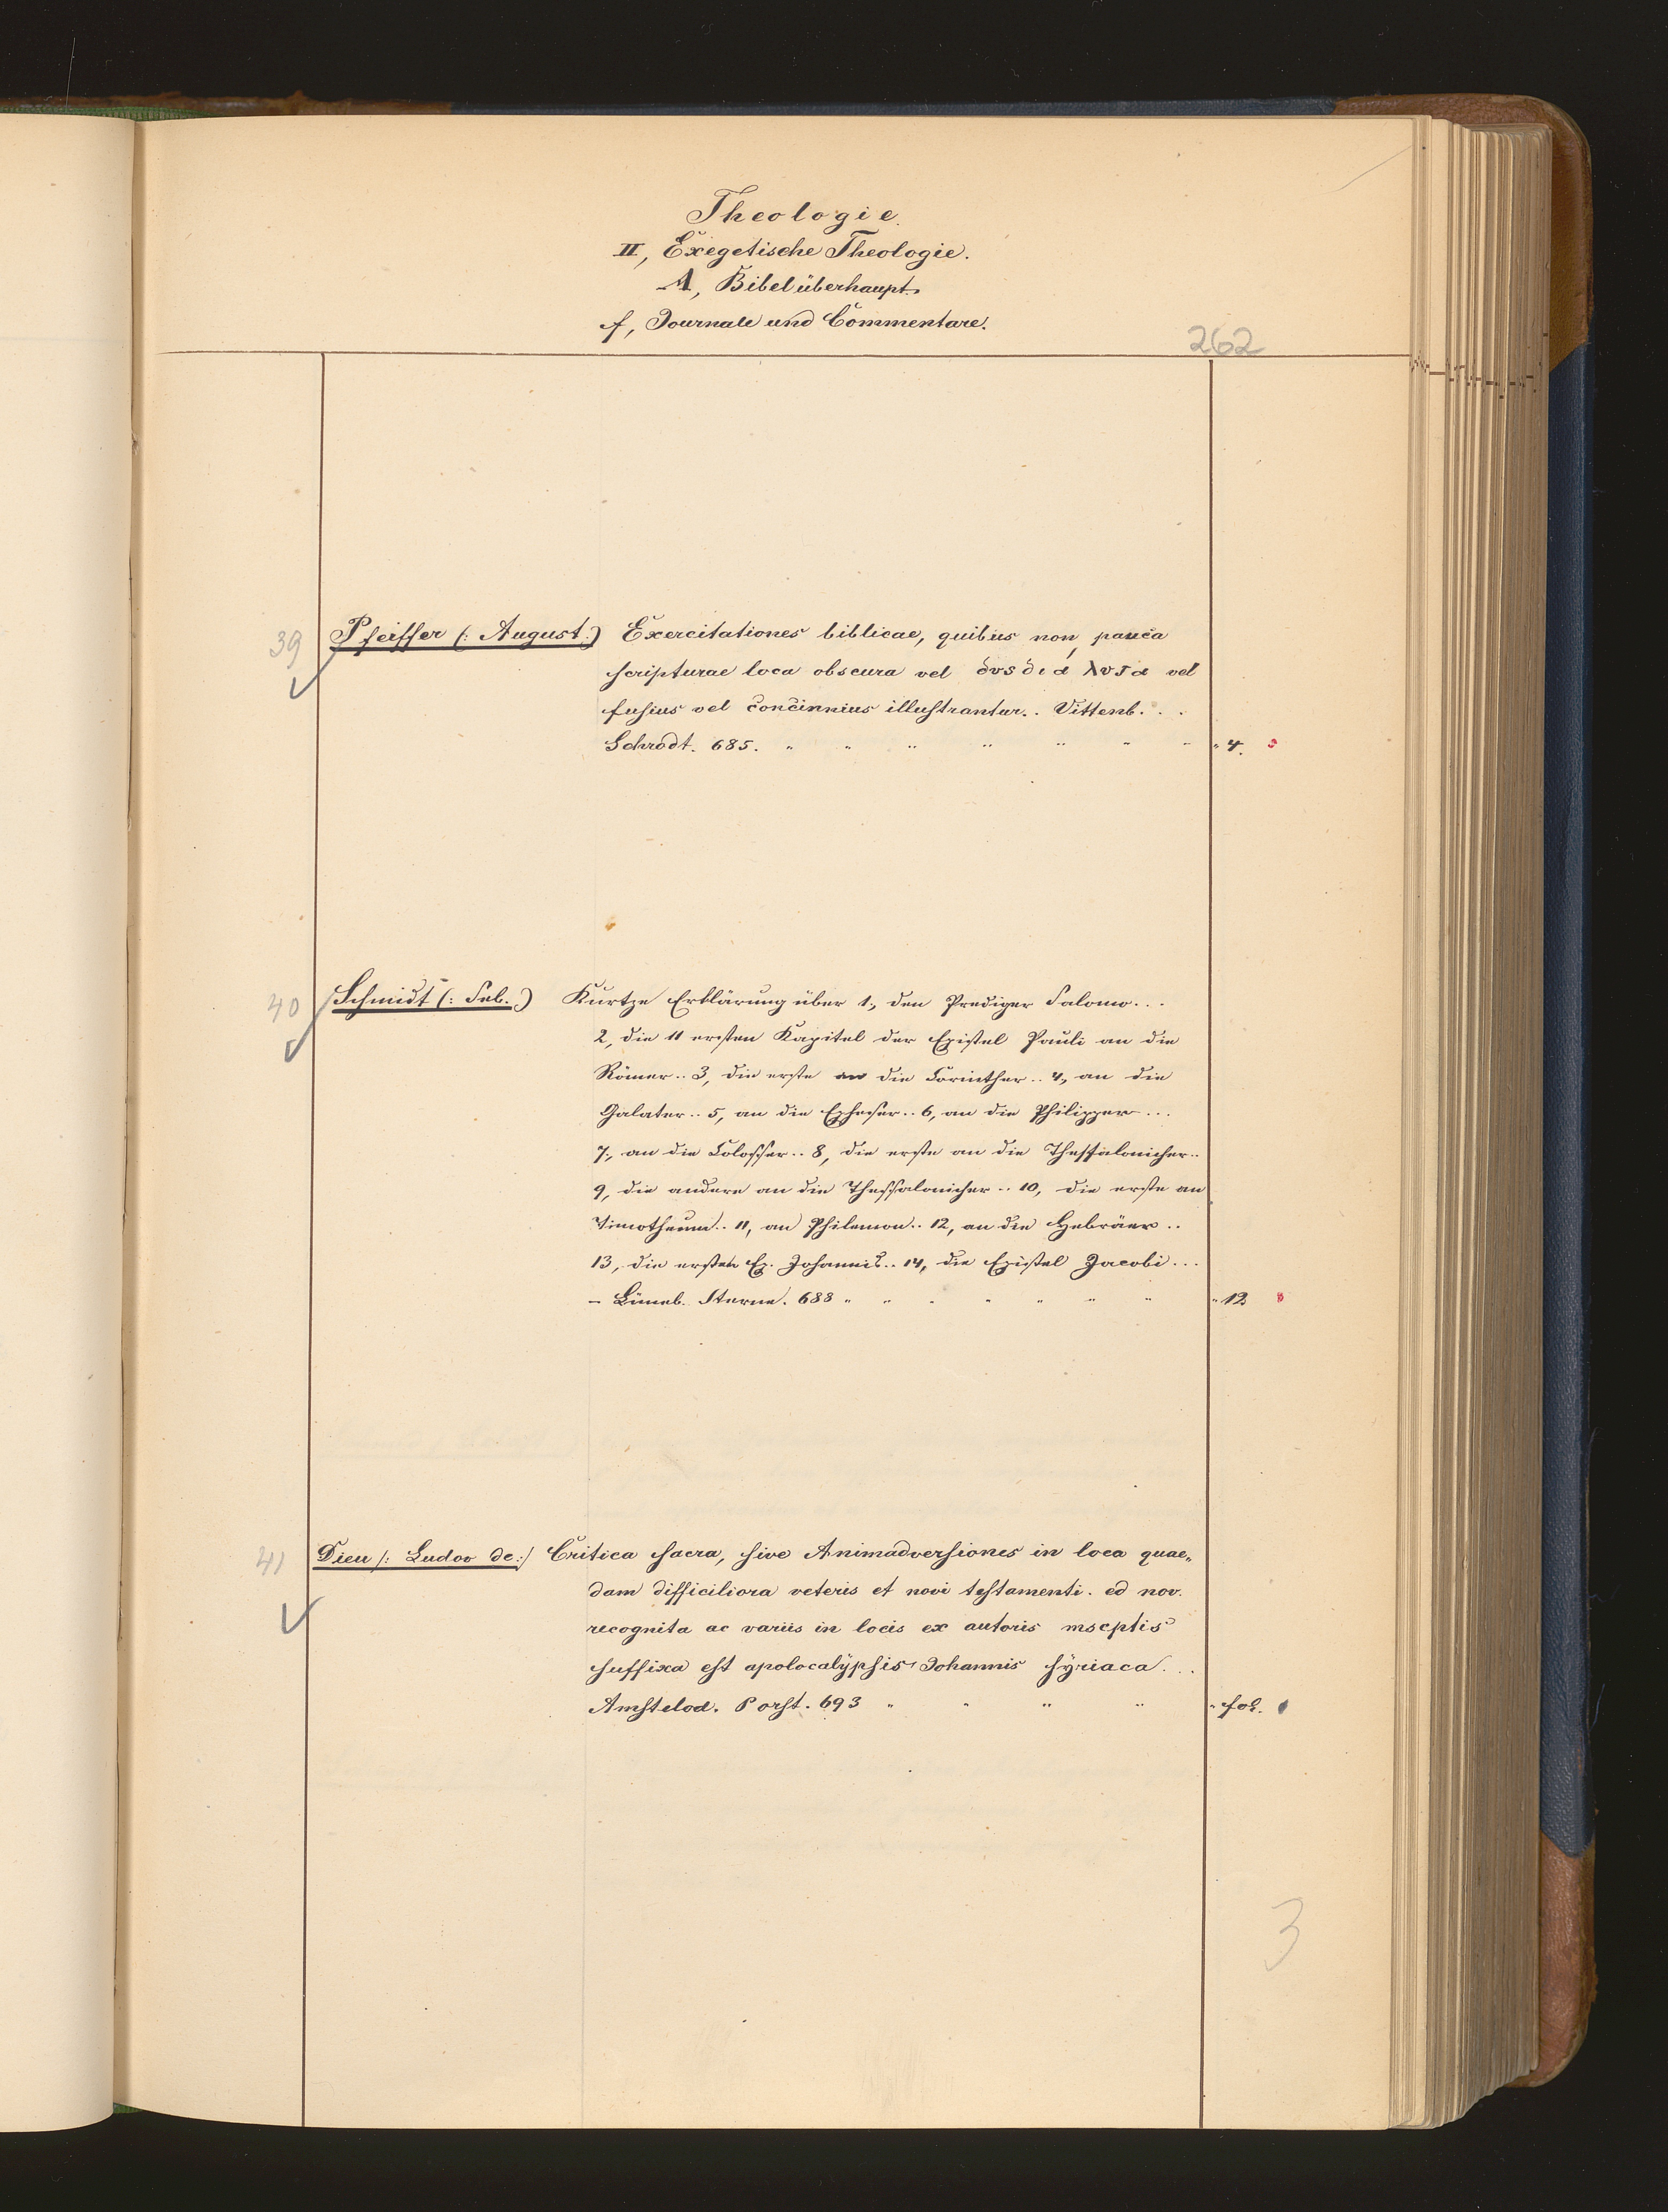 Theologie.
II, Exegetische Theologie.
A, Bibel überhaupt.
f, Journale und Commentare.
262
39 Pfeiffer (: August :) Exercitationes biblicae, quibus non pauca
scripturae loca obscura vel δυσδιάλυτα vel
fusius vel concinnius illustrantur.. Vittenb. . .
Schrödt. 685. " " " " " " " " 4.
40 Schmidt (: Seb. :) Kurtze Erklärung über 1., den Prediger Salomo...
2, die 11 ersten Kapitel der Epistel Pauli an die
Römer.. 3, die erste an die Corinther.. 4., an die
Galater.. 5, an die Epheser.. 6, an die Philipper...
7., an die Colosser.. 8, die erste an die Thessalonicher..
9, die andere an die Thessalonicher.. 10, die erste an
Timotheum.. 11, an Philemon.. 12, an die Hebräer..
13, die ersten Ep. Johannis.. 14, die Epistel Jacobi...
– Lüneb. Sterne. 688 " " " " " " " " 12.
41 Dieu (: Ludov de :) Critica sacra, sive Animadversiones in loca quae„
dam difficiliora veteris et novi testamenti. ed nov.
recognita ac variis in locis ex autoris mscptis
suffixa est apolocalypsis Johannis syriaca...
Amstelod. Borst. 693 " " " " " fol.
3